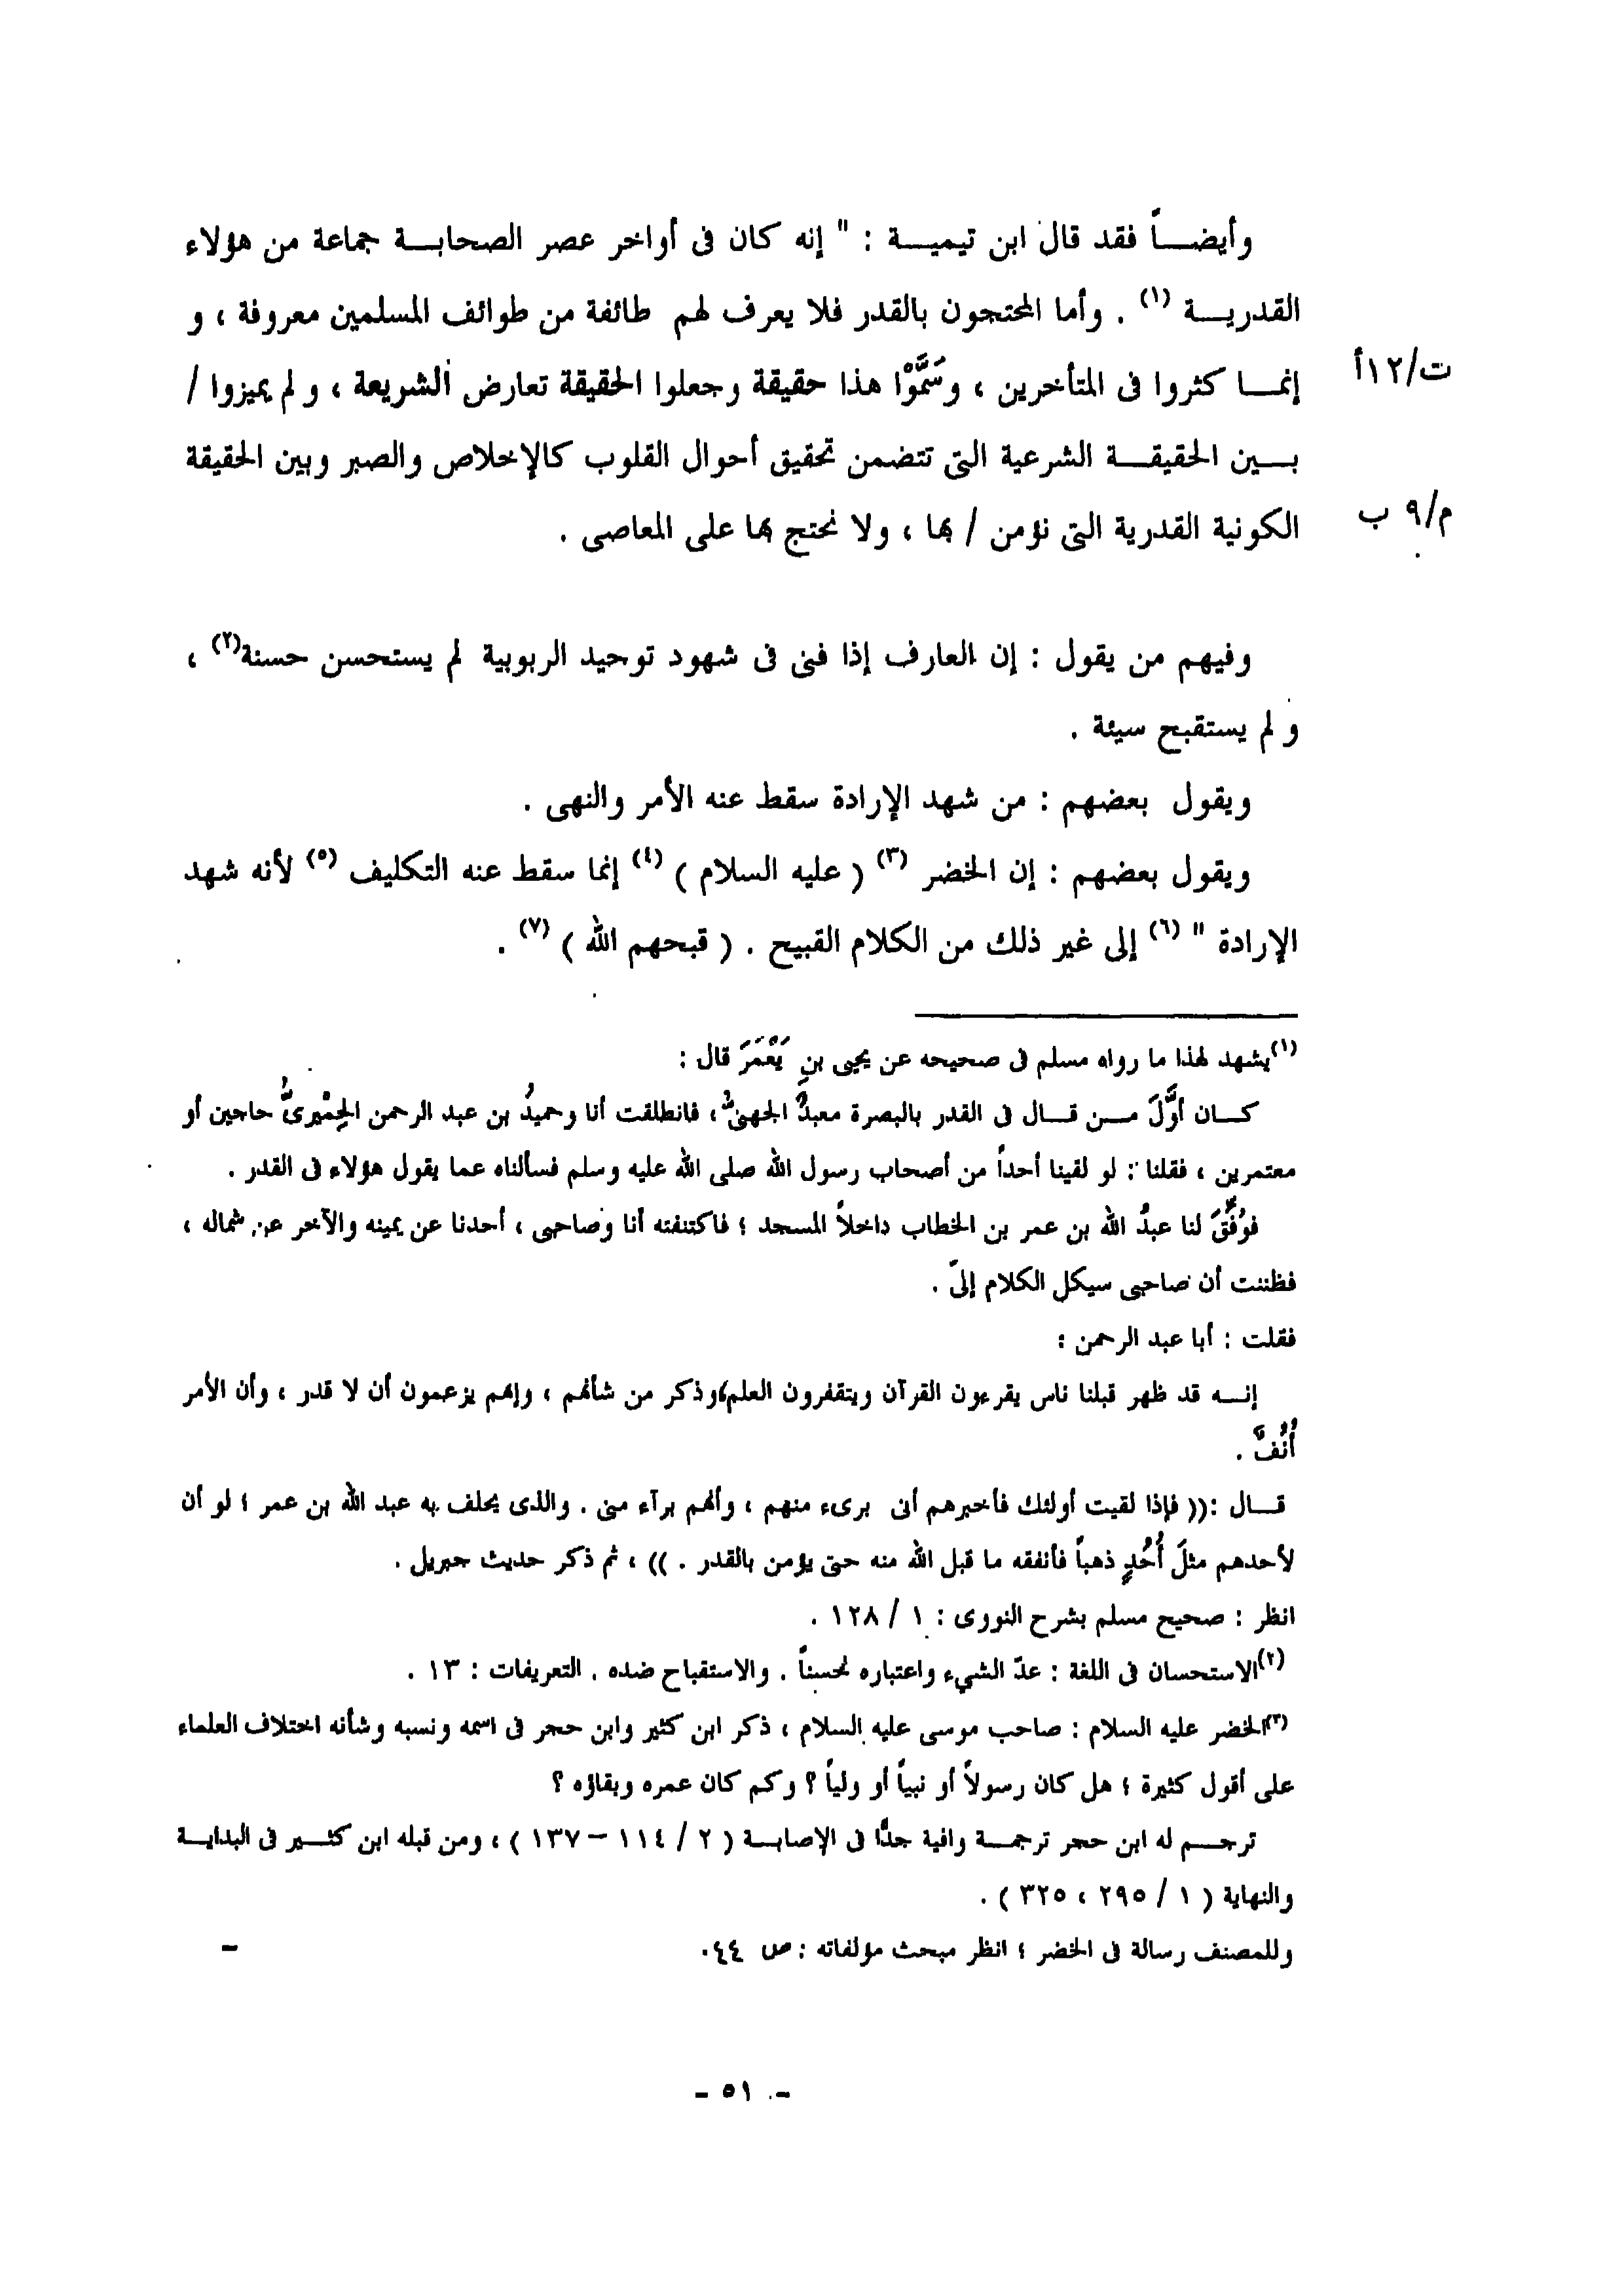 وأيضاً فقد قال ابن تيمية : " إنه كان فى أواخر عصر الصحابة جماعة من هؤلاء
القدرية (١) . وأما المحتجون بالقدر فلا يعرف لهم طائفة من طوائف المسلمين معروفة ، و
إنما كثروا فى المتأخرين ، وسَمَّوْا هذا حقيقة وجعلوا الحقيقة تعارض الشريعة ، و لم يميزوا /
ت/١٢أ
بين الحقيقة الشرعية التى تتضمن تحقيق أحوال القلوب كالإخلاص والصبر وبين الحقيقة
الكونية القدرية التى نؤمن / بها ، ولا نحتج بها على المعاصى .
م/٩ ب
وفيهم من يقول : إن العارف إذا فنى فى شهود توحيد الربوبية لم يستحسن حسنة(٢) ،
و لم يستقبح سيئة .
ويقول بعضهم : من شهد الإرادة سقط عنه الأمر والنهى .
ويقول بعضهم : إن الخضر (٣) ( عليه السلام ) (٤) إنما سقط عنه التكليف (٥) لأنه شهد
الإرادة " (٦) إلى غير ذلك من الكلام القبيح . ( قبحهم الله ) (٧) .
(١)يشهد لهذا ما رواه مسلم فى صحيحه عن يحيى بنِ يَعْمَرَ قال :
كان أوَّلَ من قال فى القدر بالبصرة معبدٌ الجهنىُّ ، فانطلقت أنا وحميدُ بن عبد الرحمن الحِمْيرىُّ حاجين أو
معتمرين ، فقلنا : لو لقينا أحداً من أصحاب رسول الله صلى الله عليه وسلم فسألناه عما يقول هؤلاء فى القدر .
فوُفِّقَ لنا عبدُ الله بن عمر بن الخطاب داخلاً المسجد ؛ فاكتنفته أنا وصاحبى ، أحدنا عن يمينه والآخر عن شماله ،
فظننت أن صاحبى سيكل الكلام إلىّ .
فقلت : أبا عبد الرحمن :
إنه قد ظهر قبلنا ناس يقرءون القرآن ويتقفرون العلم،وذكر من شأنهم ، وإنهم يزعمون أن لا قدر ، وأن الأمر
أُنُفٌ .
قال :(( فإذا لقيت أولئك فأخبرهم أنى برىء منهم ، وأنهم برآء منى . والذى يحلف به عبد الله بن عمر ؛ لو أن
لأحدهم مثلَ أُحُدٍ ذهباً فأنفقه ما قبل الله منه حتى يؤمن بالقدر . )) ، ثم ذكر حديث جبريل .
انظر : صحيح مسلم بشرح النووى : ١ / ١٢٨ .
(٢)الاستحسان فى اللغة : عدّ الشيء واعتباره لحسناً . والاستقباح ضده . التعريفات : ١٣ .
(٣)الخضر عليه السلام : صاحب موسى عليه السلام ، ذكر ابن كثير وابن حجر فى اسمه ونسبه وشأنه اختلاف العلماء
على أقول كثيرة ؛ هل كان رسولاً أو نبياً أو ولياً ؟ وكم كان عمره وبقاؤه ؟
ترجم له ابن حجر ترجمة وافية جدًّا فى الإصابة ( ٢ / ١١٤ – ١٣٧ ) ، ومن قبله ابن كثير فى البداية
والنهاية ( ١ / ٢٩٥ ، ٣٢٥ ) .
وللمصنف رسالة فى الخضر ؛ انظر مبحث مؤلفاته : ص ٤٤. –
- ٥١ -